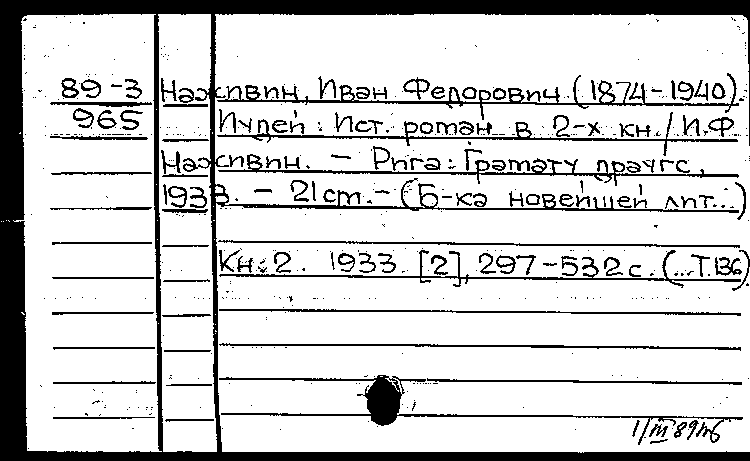 89-3 Наживин, Иван Федорович (1874-1940).
965 Иудей: Ист. роман в 2-х кн./И.Ф
Наживин. - Рига: Грамату драугс,
1933. - 21 cm. - (Б-ка новейшей лит...)
Кн. 2. 1933. [2], 297-532 с. (...Т.136)
1/III 89